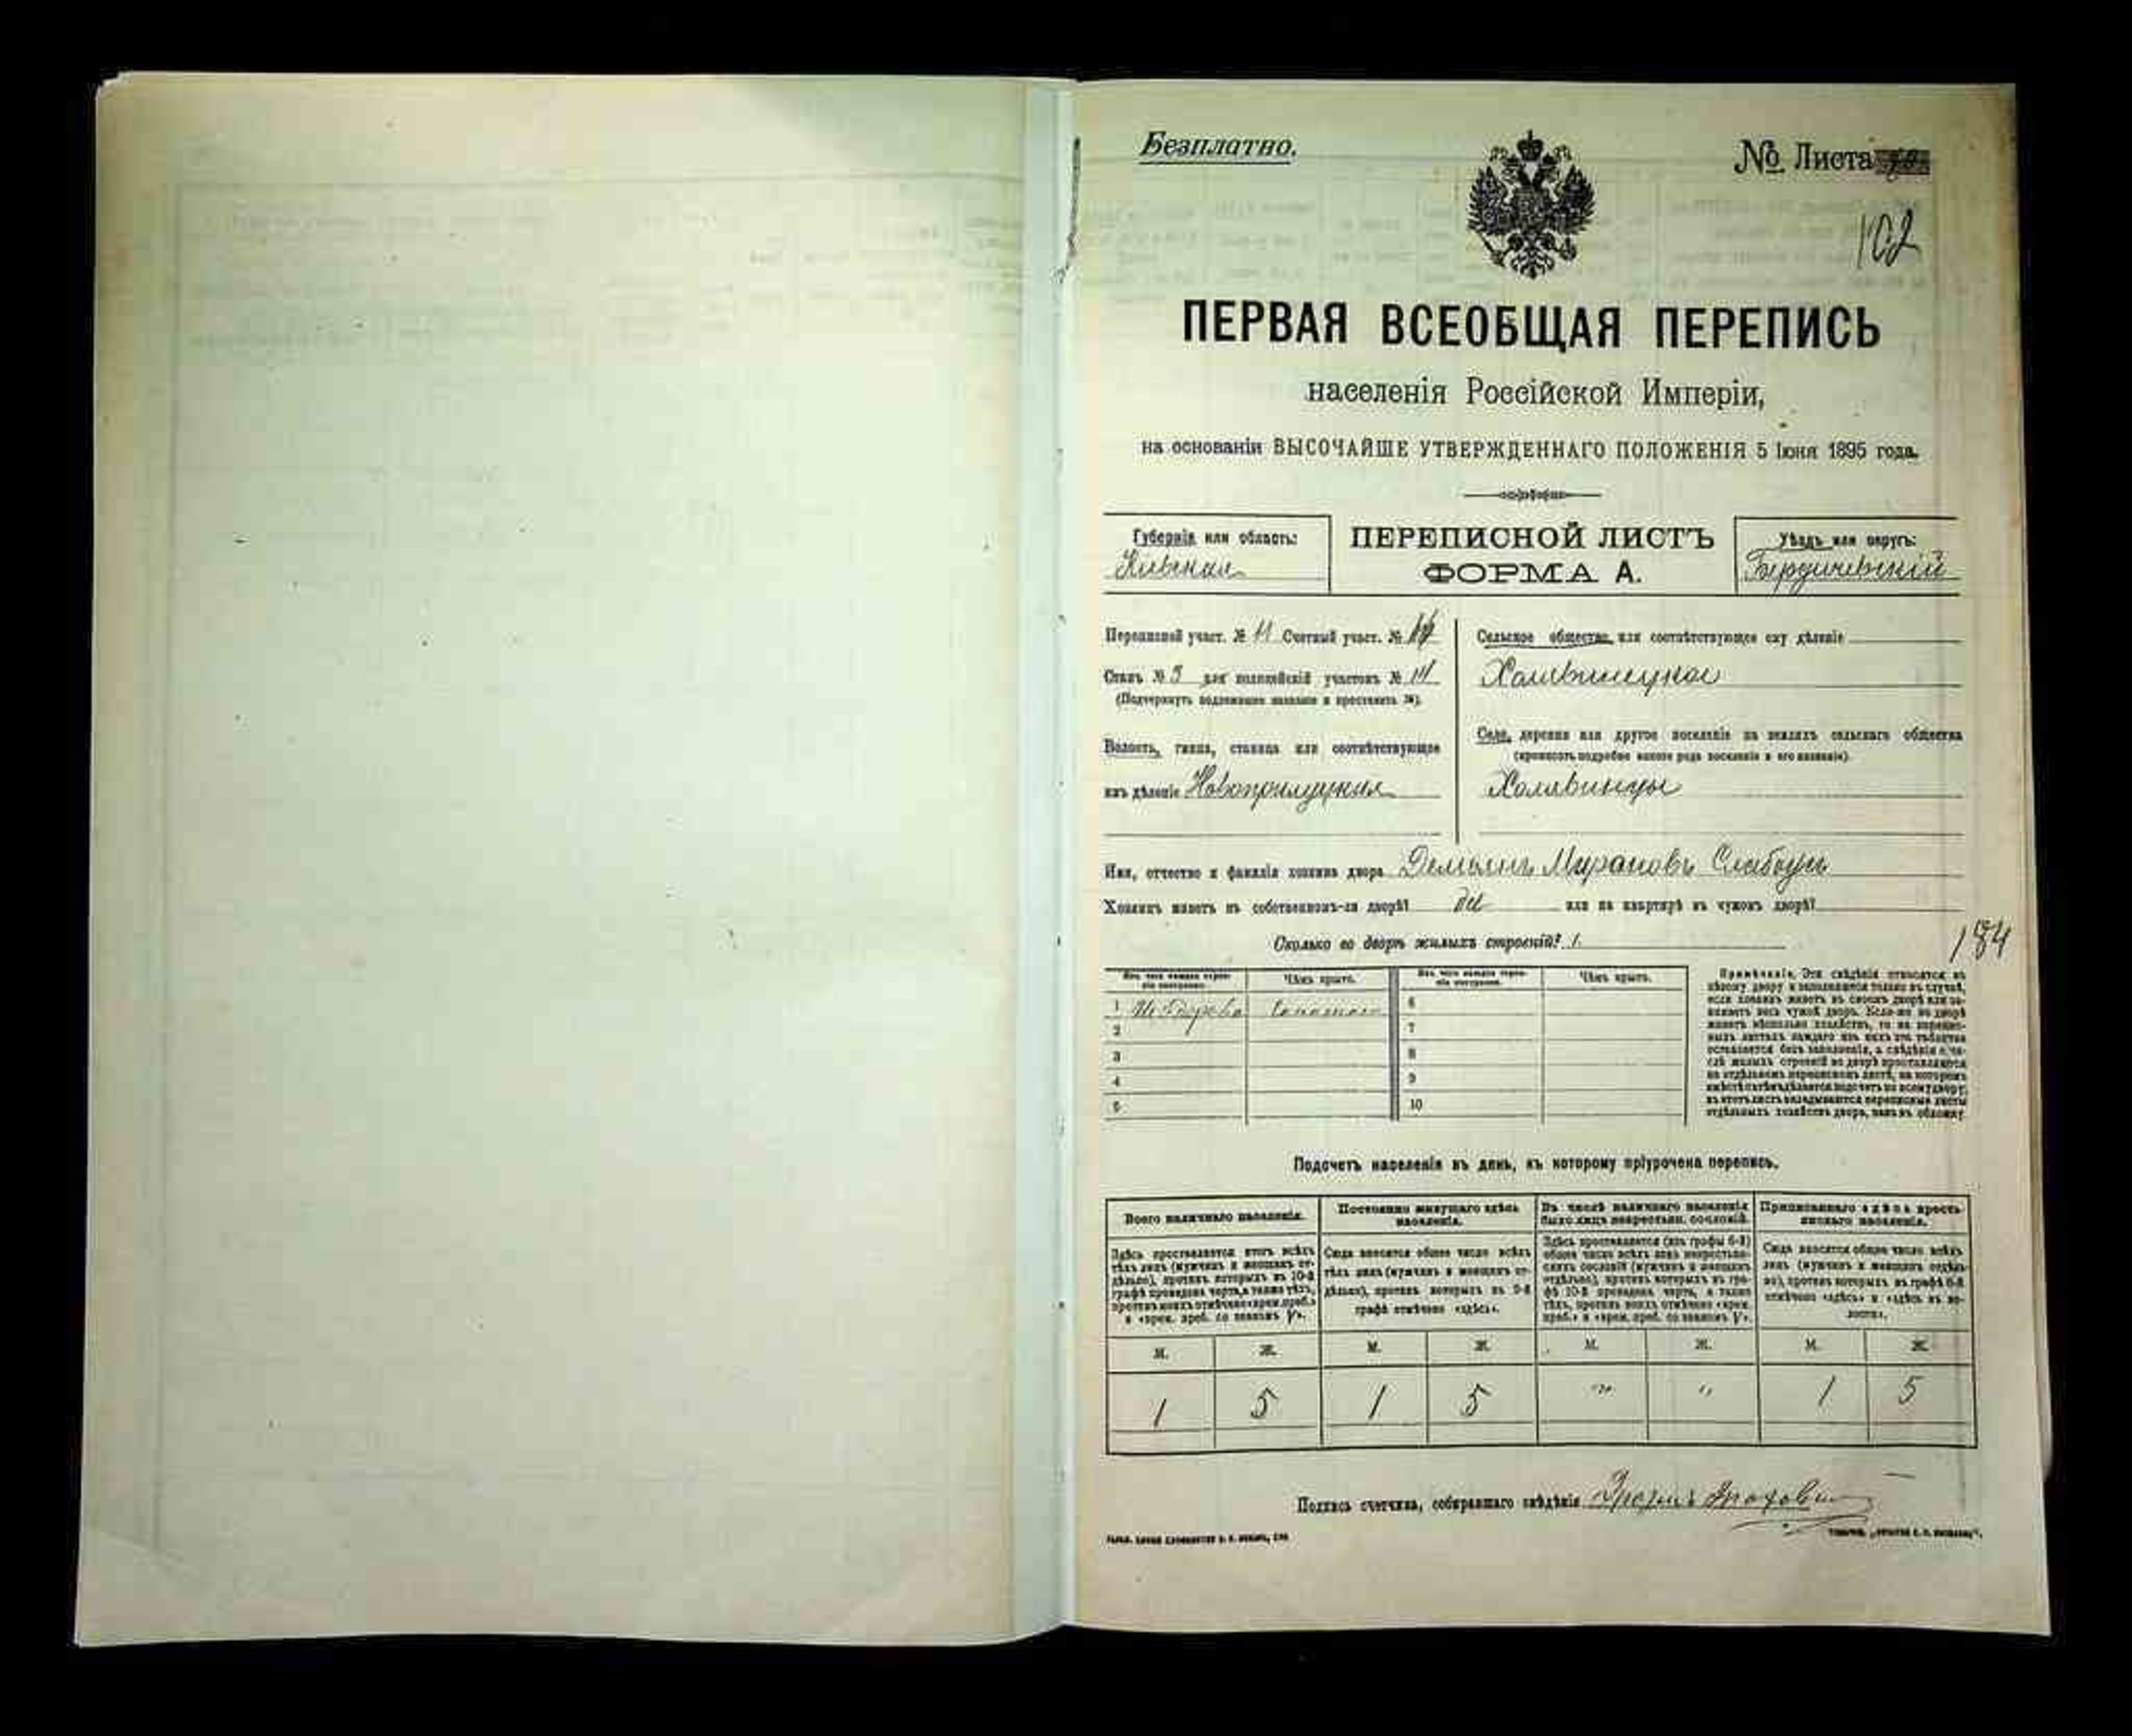 Безплатно.
№ Листа
102
ПЕРВАЯ ВСЕОБЩАЯ ПЕРЕПИСЬ
населенія Россійской Имперіи,
на основаніи ВЫСОЧАЙШЕ УТВЕРЖДЕННАГО ПОЛОЖЕНІЯ 5 Іюня 1895 года.
Губернія или область:
Кіевская
ПЕРЕПИСНОЙ ЛИСТЪ
ФОРМА А.
Уѣздъ или округъ:
Бердичевскій
Переписной участ. № 11 Счетный участ. №
Станъ № 3 или полицейскій участокъ №
(Подчеркнуть подлежащее названіе и проставить №).
Волость, гмина, станица или соотвѣтствующее
имъ дѣленіе Новоприлуцкая
Сельское общество или соотвѣтствующее ему дѣленіе
Холявинецкое
Село, деревня или другое поселеніе на земляхъ сельскаго общества
(прописать подробно какого рода поселеніе и его названіе).
Холявинцы
Имя, отчество и фамилія хозяина двора Демьянъ Слабоунъ
Хозяинъ живетъ въ собственномъ-ли дворѣ? да или на квартирѣ въ чужомъ дворѣ?
Сколько во дворѣ жилыхъ строеній? 1.
184
Изъ чего каждое строеніе построено.
Чѣмъ крыто.
Изъ чего каждое строеніе построено.
Чѣмъ крыто.
1 Изъ дерева Соломою
2
3
4
5
6
7
8
9
10
Примѣчаніе. Эти свѣдѣнія относятся къ
цѣлому двору и заполняются только въ случаѣ,
если хозяинъ живетъ въ своемъ дворѣ или за-
нимаетъ весь чужой дворъ. Если-же во дворѣ
живетъ нѣсколько хозяйствъ, то на перепис-
ныхъ листахъ каждаго изъ нихъ эта табличка
оставляется безъ заполненія, а свѣдѣнія о чи-
слѣ жилыхъ строеній во дворѣ проставляются
на отдѣльномъ переписномъ листѣ, на которомъ
вмѣстѣ съ тѣмъ дѣлается подсчетъ по всему двору;
въ этотъ листъ вкладываются переписные листы
отдѣльныхъ хозяйствъ двора, какъ въ обложку
Подсчетъ населенія въ день, къ которому пріурочена перепись.
Всего наличнаго населенія.
Здѣсь проставляется итогъ всѣхъ
тѣхъ лицъ (мужчинъ и женщинъ от-
дѣльно), противъ которыхъ въ 10-й
графѣ проведена черта, а также тѣхъ,
противъ коихъ отмѣчено «врем. преб.»
и «врем. преб. со знакомъ V».
Постоянно живущаго здѣсь
населенія.
Сюда вносится общее число всѣхъ
тѣхъ лицъ (мужчинъ и женщинъ от-
дѣльно), противъ которыхъ въ 9-й
графѣ отмѣчено «здѣсь».
Въ числѣ наличнаго населенія
было лицъ некрестьян. сословій.
Здѣсь проставляется (изъ графы 6-й)
общее число всѣхъ лицъ некрестьян-
скихъ сословій (мужчинъ и женщинъ
отдѣльно), противъ которыхъ въ гра-
фѣ 10-й проведена черта, а также
тѣхъ, противъ коихъ отмѣчено «врем.
преб.» и «врем. преб. со знакомъ V».
Приписаннаго здѣсь кресть-
янскаго населенія.
Сюда вносится общее число всѣхъ
лицъ (мужчинъ и женщинъ отдѣль-
но), противъ которыхъ въ графѣ 8-й
отмѣчено «здѣсь» и «здѣсь въ во-
лости».
М. Ж. М. Ж. М. Ж. М. Ж.
1 5 1 5 „ „ 1 5
Подпись счетчика, собиравшаго свѣдѣнія